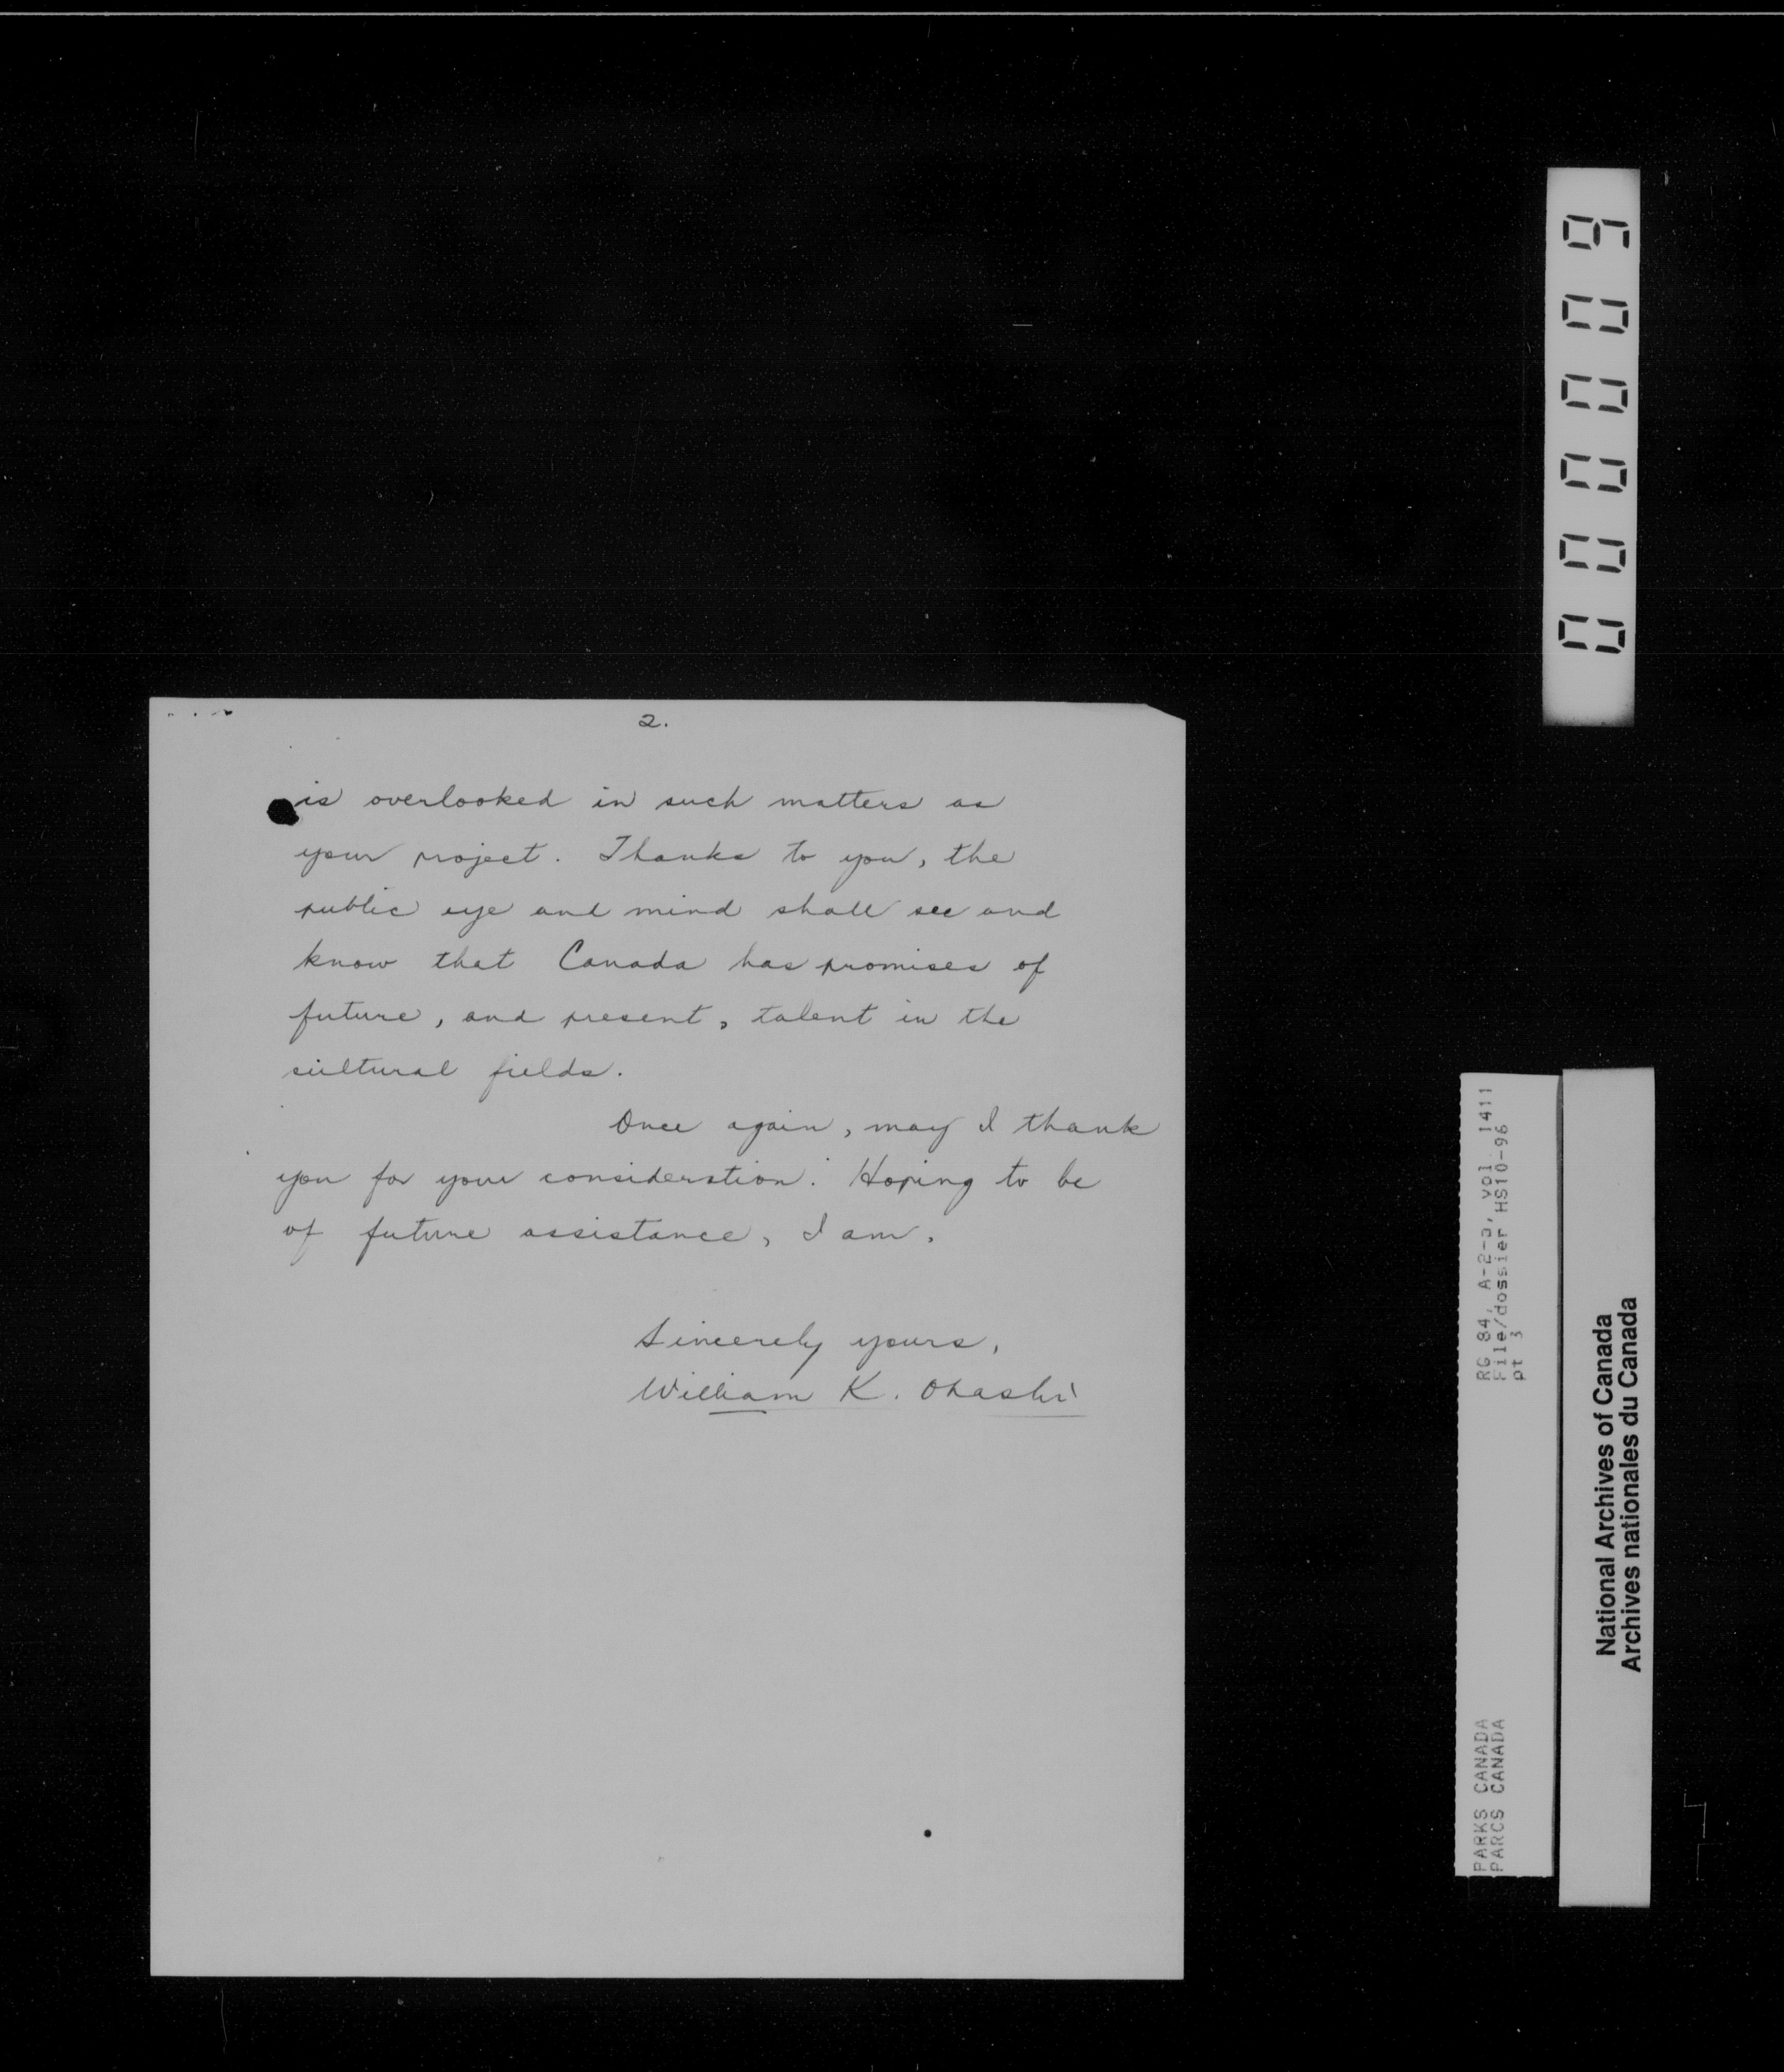 2.
is overlooked in such matters as
your project. Thanks to you, the
public eye and mind shall see and
know that Canada has promises of
future, and present, talent in the
cultural fields.
Once again, may I thank
you for your consideration. Hoping to be
of future assistance, I am,
Sincerely yours,
William K. Ohashi
000009
RG 84, A-2-a, vol 1411
File/dossier HS10-96
pt 3
PARKS CANADA
PARCS CANADA
National Archives of Canada
Archives nationales du Canada